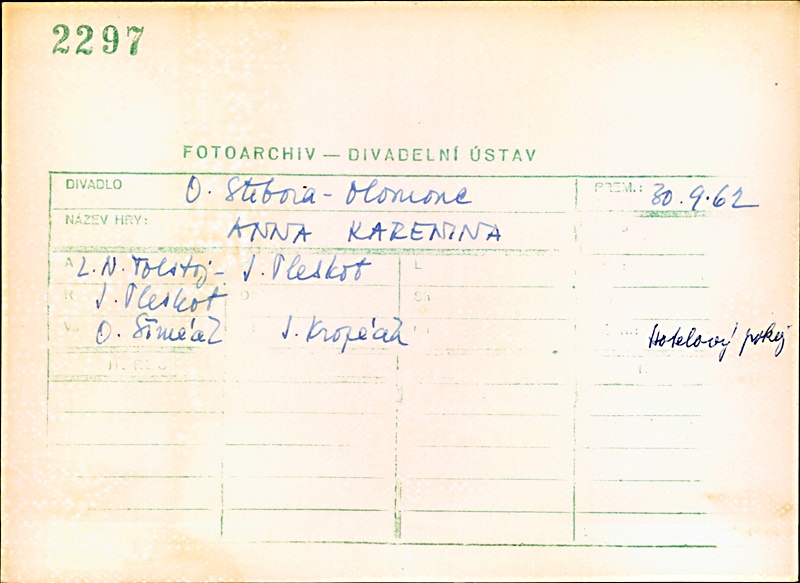 2297
FOTOARCHIV — DIVADELNÍ ÚSTAV
DIVADLO O. Stibora - Olomouc PREM.: 30.9.62
NÁZEV HRY: ANNA KARENINA
A L. N. Tolstoj - J. Pleskot L
R J. Pleskot O Sh
O. Šimáček J. Kropáček Hotelový pokoj